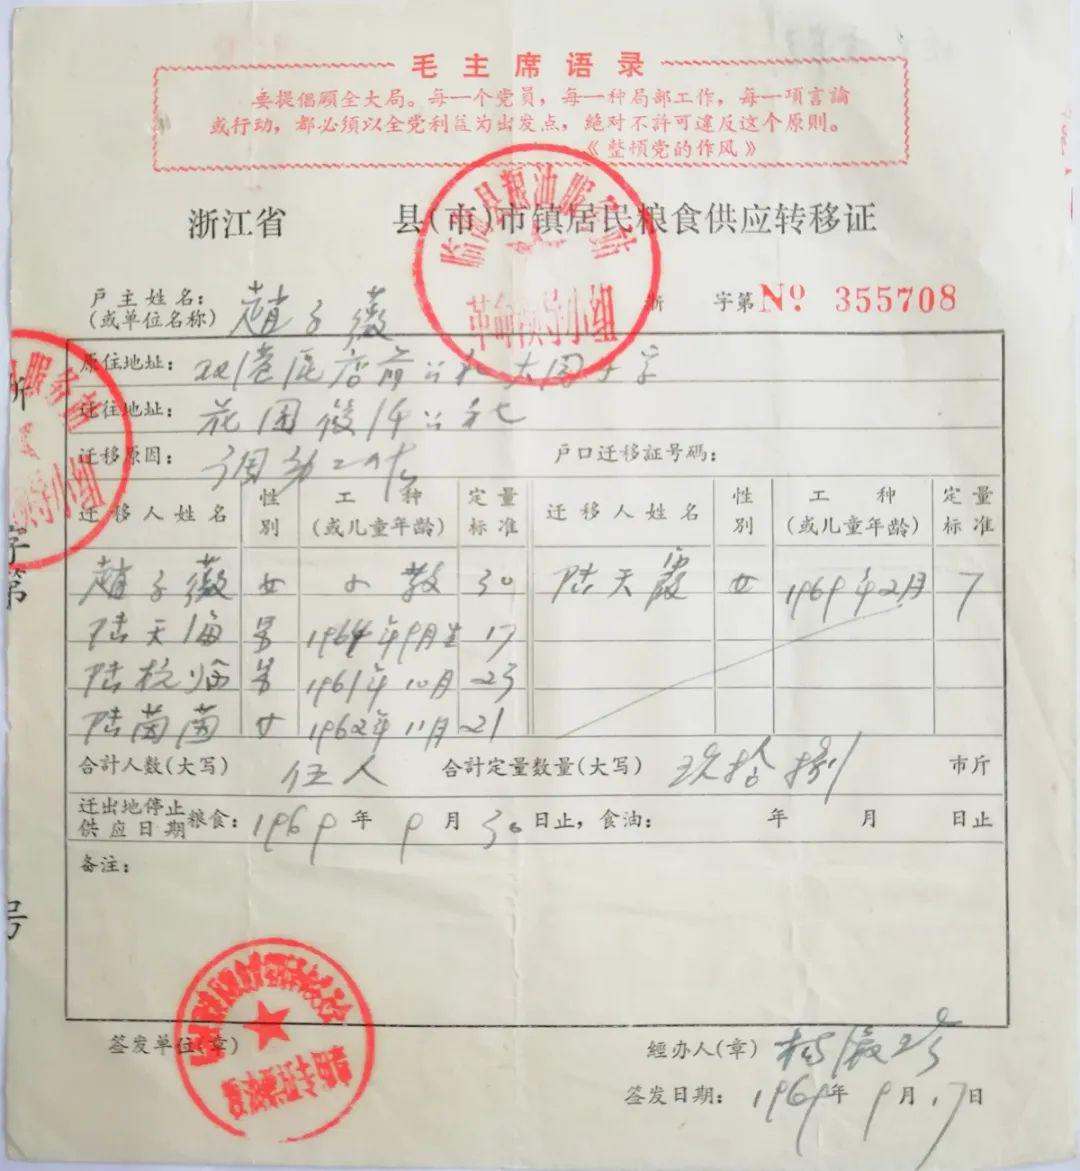 毛主席语录
要提倡顾全大局。每一个党员，每一种局部工作，每一項言論
或行动，都必须以全党利益为出发点，绝对不許可違反这个原则。
《整頓党的作风》
浙江省 县(市)市镇居民粮食供应转移证
临海县粮油服务站
革命领导小组
户主姓名：
(或单位名称) 趙子薇
浙 字第 No 355708
原住地址： 双港区店前公社大園
迁往地址： 花园
迁移原因： 调动工作 户口迁移証号碼：
迁移人姓名 性别 工种(或儿童年龄) 定量标准 迁移人姓名 性别 工种(或儿童年龄) 定量标准
趙子薇 女 小教 30 陆天霞 女 1969年2月 7
陆天海 男 1964年9月生 17
陆杭临 男 1961年10月 23
陆茵茵 女 1962年11月 21
合計人数(大写) 伍人 合計定量数量(大写) 玖拾捌 市斤
迁出地停止供应日期 粮食： 1969年9月30日止，食油： 年 月 日止
备注：
签发单位(章) 經办人(章) 杨
签发日期： 1969年9月17日
服务站
领导小组
字第
号